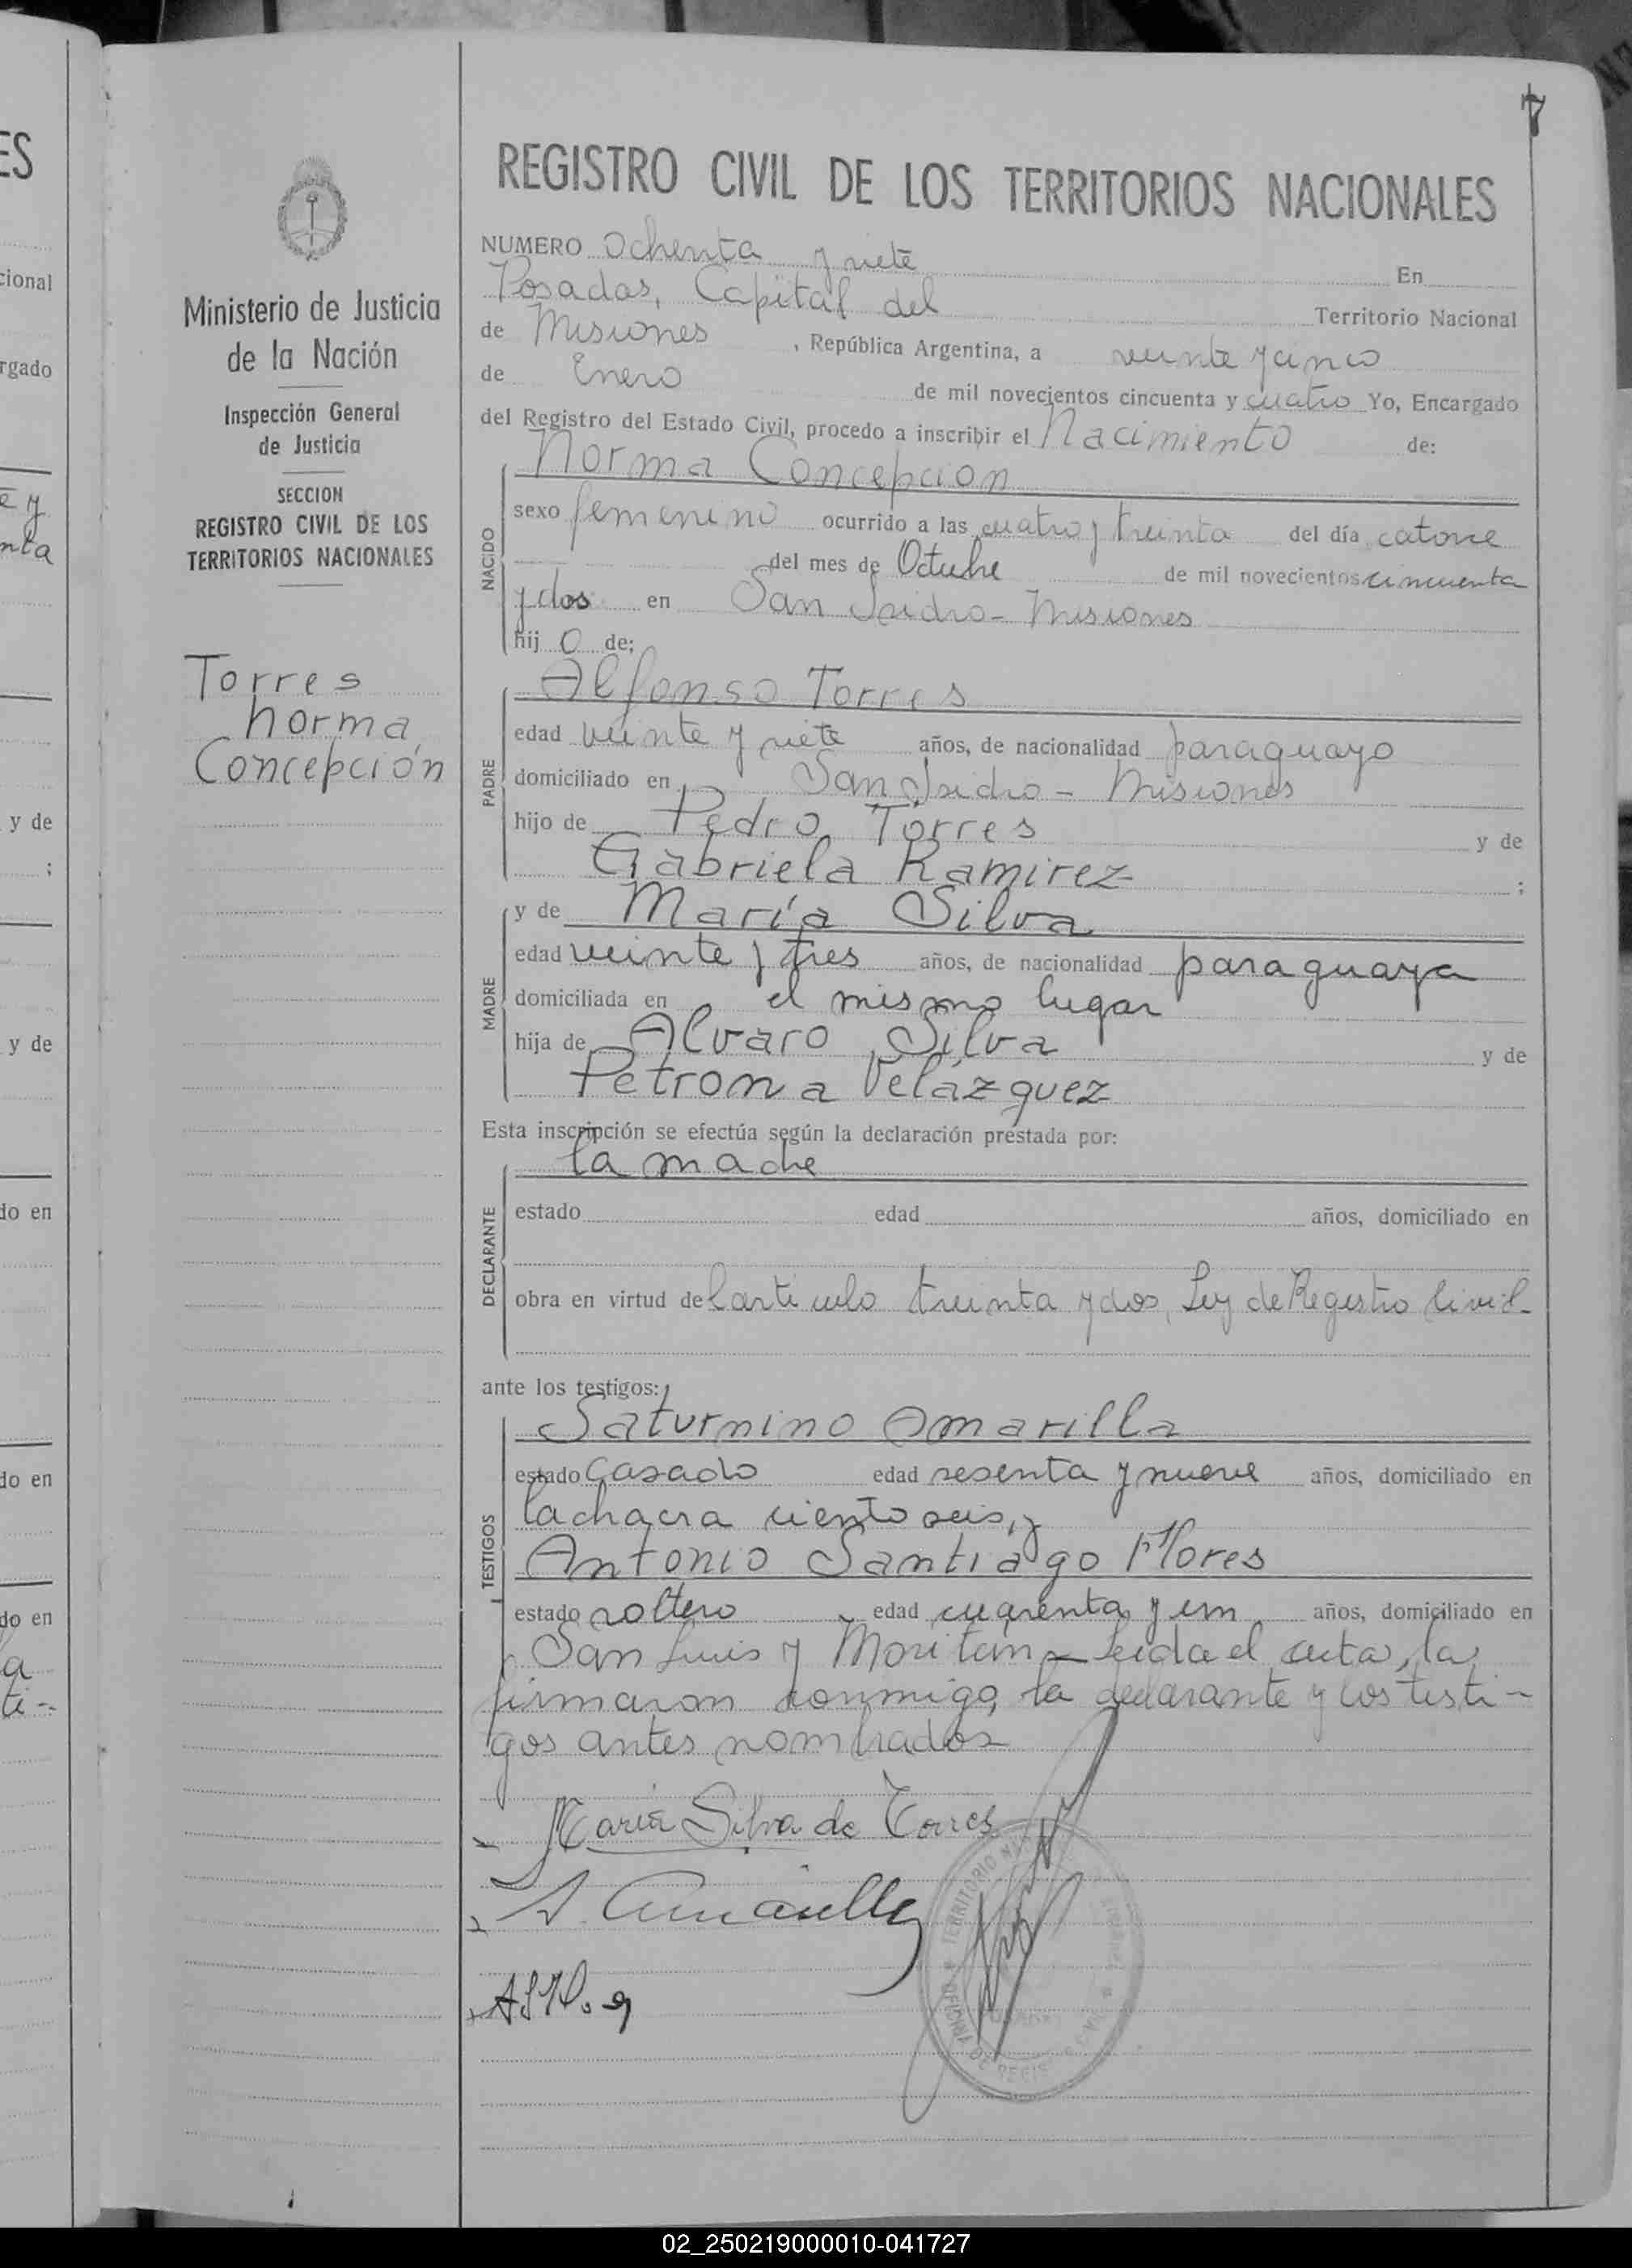 7
REGISTRO CIVIL DE LOS TERRITORIOS NACIONALES
Ministerio de Justicia
de la Nación
Inspección General
de Justicia
SECCION
REGISTRO CIVIL DE LOS
TERRITORIOS NACIONALES
Torres
Norma
Concepción
NUMERO Ochenta y siete En
Posadas, Capital del Territorio Nacional
de Misiones, República Argentina, a veinte y cinco
de Enero de mil novecientos cincuenta y cuatro Yo, Encargado
del Registro del Estado Civil, procedo a inscribir el Nacimiento de:
NACIDO
Norma Concepcion
sexo femenino ocurrido a las cuatro y treinta del día catorce
del mes de Octubre de mil novecientos cincuenta
y dos en San Isidro - Misiones
hij o de:
PADRE
Alfonso Torres
edad veinte y siete años, de nacionalidad paraguayo
domiciliado en San Isidro - Misiones
hijo de Pedro Torres y de
Gabriela Ramirez ;
MADRE
y de María Silva
edad veinte y tres años, de nacionalidad paraguaya
domiciliada en el mismo lugar
hija de Alvaro Silva y de
Petrona Velázquez
Esta inscripción se efectúa según la declaración prestada por:
DECLARANTE
la madre
estado edad años, domiciliado en
obra en virtud del articulo treinta y dos, Ley de Registro Civil-
ante los testigos:
TESTIGOS
Saturnino Amarilla
estado casado edad sesenta y nueve años, domiciliado en
la chacra ciento seis, y
Antonio Santiago Flores
estado soltero edad cuarenta y un años, domiciliado en
San Luis y Moritán - Leida el acta, la
firmaron conmigo, la declarante y los testi-
gos antes nombrados
María Silva de Torres
S. Amarilla
TERRITORIO
02_250219000010-041727